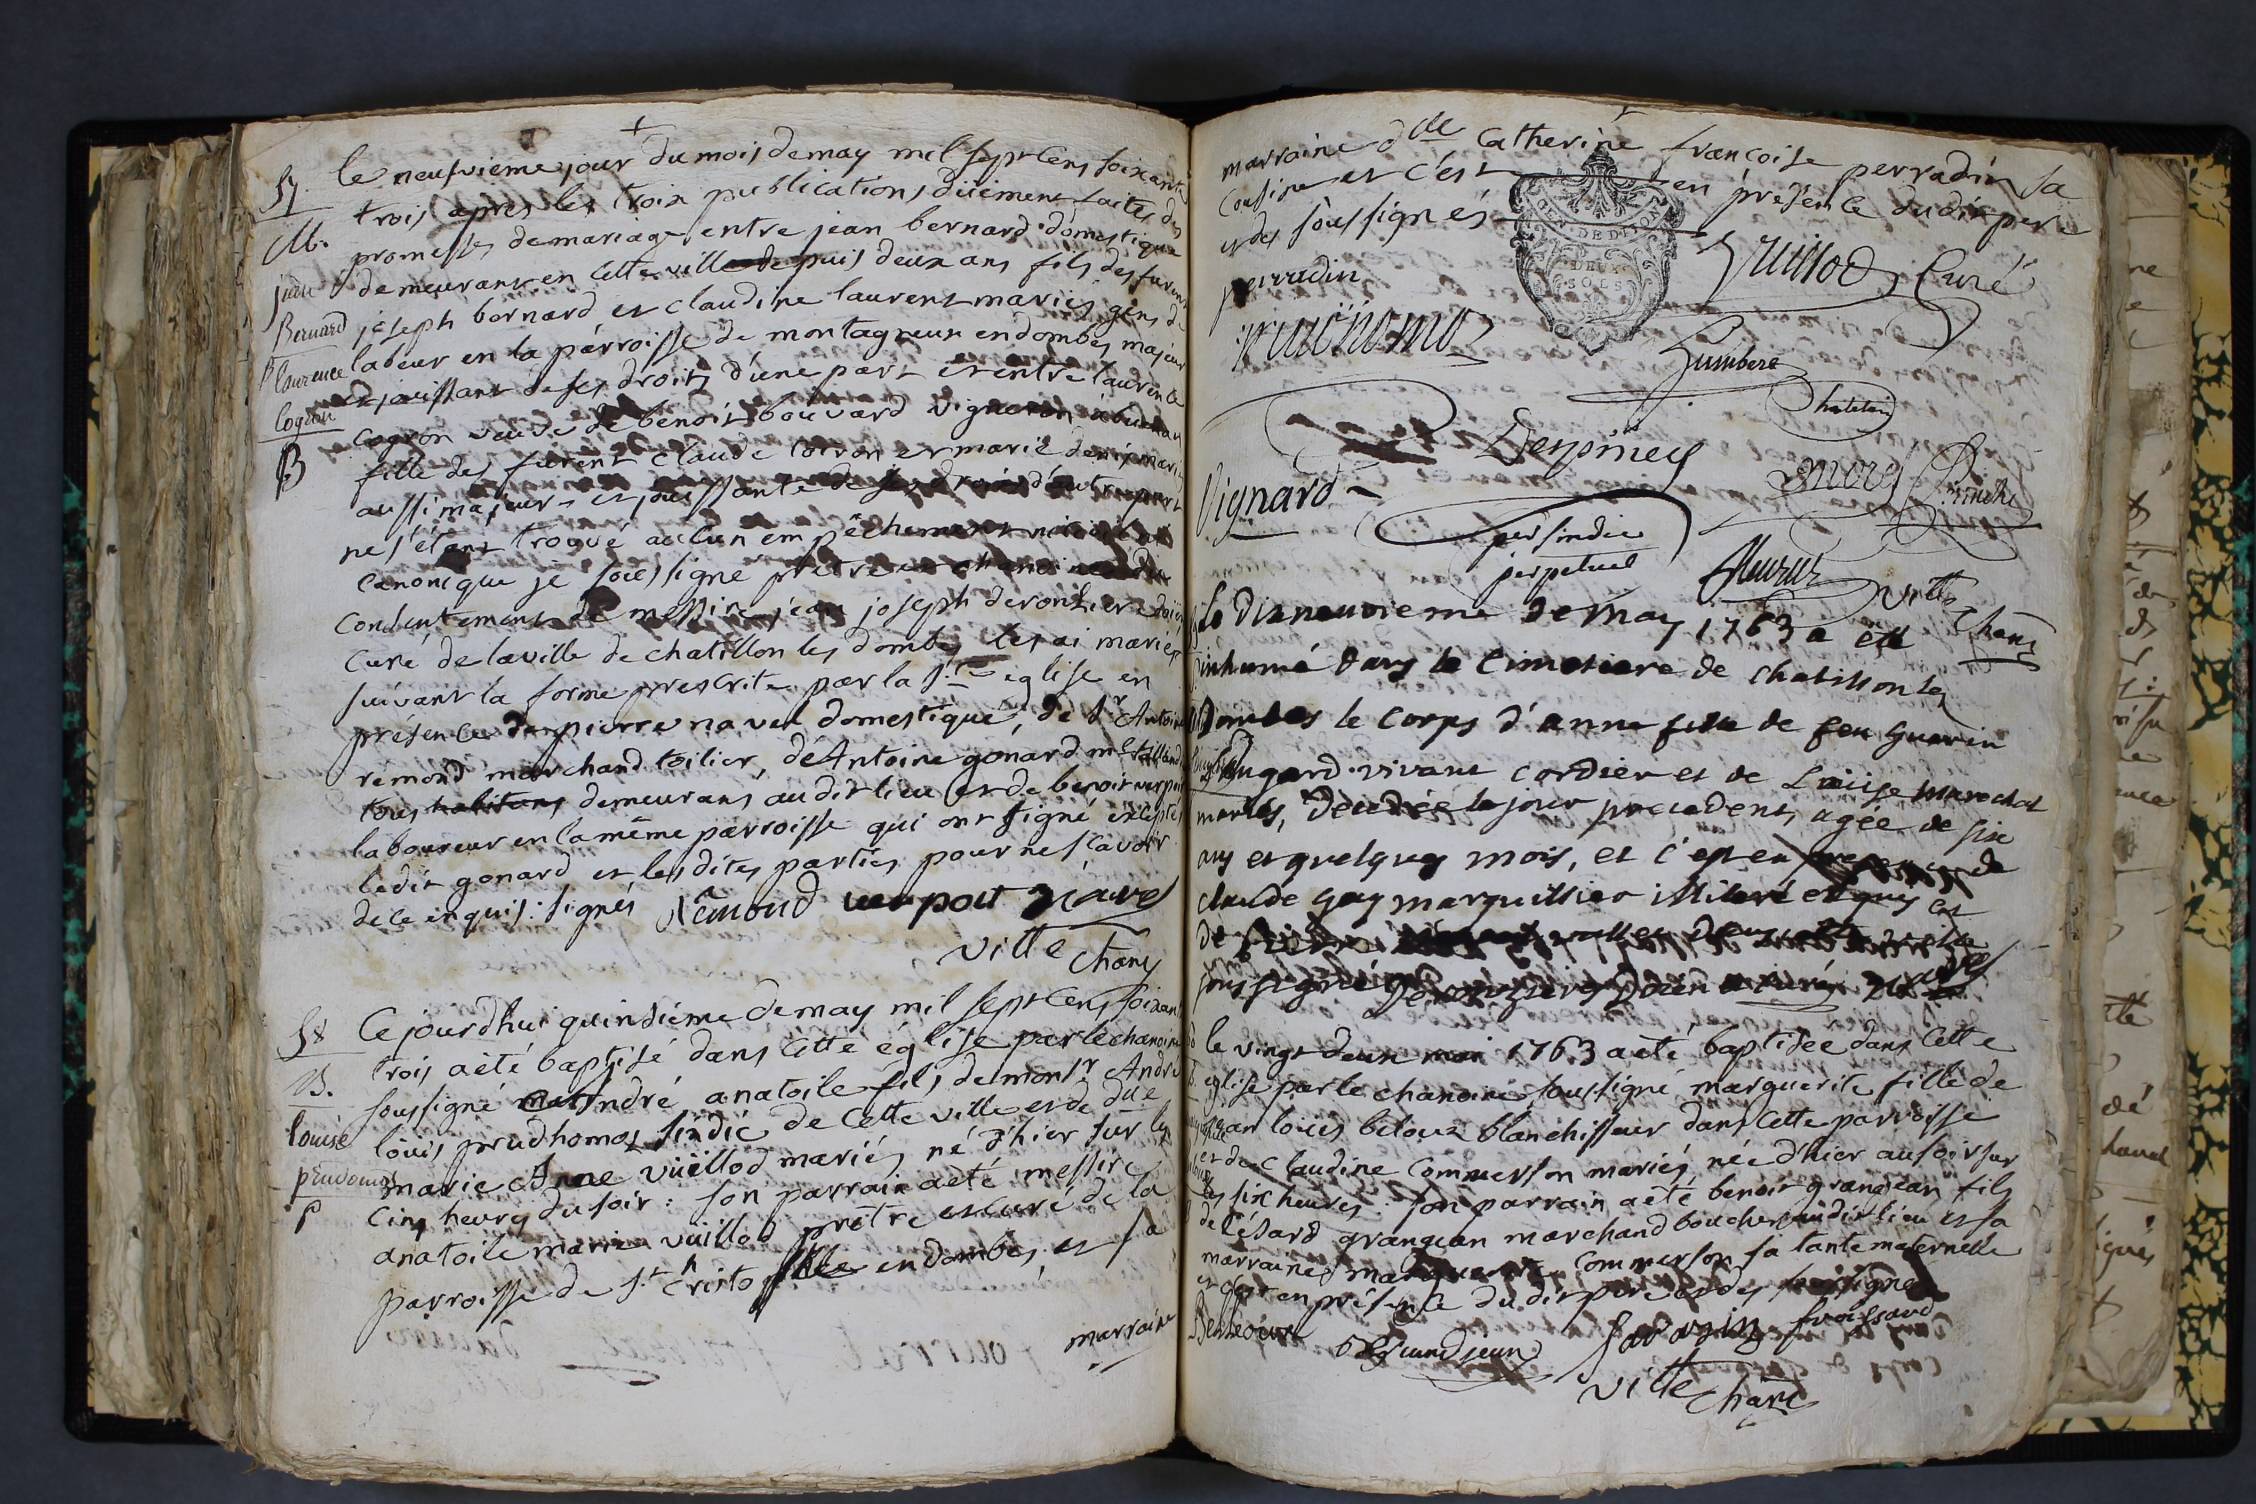 57
M.
jean
Bernard
&
laurence
cogron
B
le neufvieme jour du mois de may mil sept cens soixante
trois apres les trois publications düement faites des
promesses de mariage entre jean bernard domestique
demeurant en cette ville depuis deux ans fils des furent
joseph bornard et claudine laurent mariés gens de
labeur en la parroisse de montagneux en dombes majeur
et jouissant de ses droits d'une part et entre laurence
cogron veuve de benoit bouvard vigneron
fille des furent claude cotron et marie denis mariés
aussi majeur et jouissante de ses droits d'autre part
ne s'étant trouvé aucun empêchement ni civil ni
canonique je soussigné prêtre et chanoine du
consentement de messire jean joseph deronzier doien
curé de la ville de chatillon les dombes les ai mariés
suivant la forme prescrite par la ste eglise en
présence de pierre navel domestique, de sr Antoine
remond marchand toilier, de Antoine gonard
tous habitans demeurans au dit lieu et de benoit verpoit
laboureur en la même parroisse qui ont signé excepté
ledit gonard et lesdites parties pour ne sçavoir
de ce enquis: signés Rêmond verpoit Navel
ville chane
58
B.
louise
prudomos
P
Ce jourdhui quinsiéme de may mil sept cens soixante
trois a été baptisé dans cette église par le chanoine
soussigné André anatoile fils de monsr André
loüis prudhomos sindic de cette ville et de dlle
marie Anne vüillod mariés né d'hier sur les
cinq heures du soir: son parrain a été messire
anatoile marie vuillod prêtre et curé de la
parroisse de st Cristophle en dombes, et sa
marraine
marraine dlle Catherine francoise perradin sa
Cousine et c'est en présence dudit pere
et des soussignés
GEN. DE DIJON
DEUX
SOLS
Vuillod Curé
perradin
prudhomos
humbert
chatelain
Despiney
Vignard
per sindic
perpetuel
ville
chane
le disneuvieme de may 1763 a été
inhumé dans le cimetiere de chatillon les
Dombes le corps d'anne fille de feu guerin
augard vivant cordier et de Loüise marechal
mariés, decedée le jour precedent, agée de six
ans et quelques mois, et c'est en presence de
claude gay marguillier illiteré et
de
soussignés Deronzier Doien curé Navel
le vingt deux mai 1763 a eté baptisée dans cette
eglise par le chanoine soussigné marguerite fille de
jean loüis beloux blanchisseur dans cette parroisse
et de claudine Commerson mariés née d'hier au soir sur
les six heures: son parrain a eté benoit grangean fils
de Césard grangean marchand boucher audit lieu et sa
marraine marguerite Commerson sa tante maternelle
et c'est en présence du dit pere et des soussignés
B Grandjean Savarin froissard
ville chane